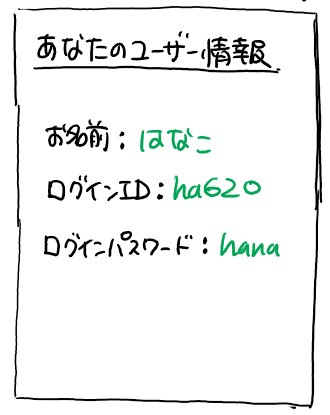 あなたのユーザー情報
お名前：はなこ
ログインID：ha620
ログインパスワード：hana